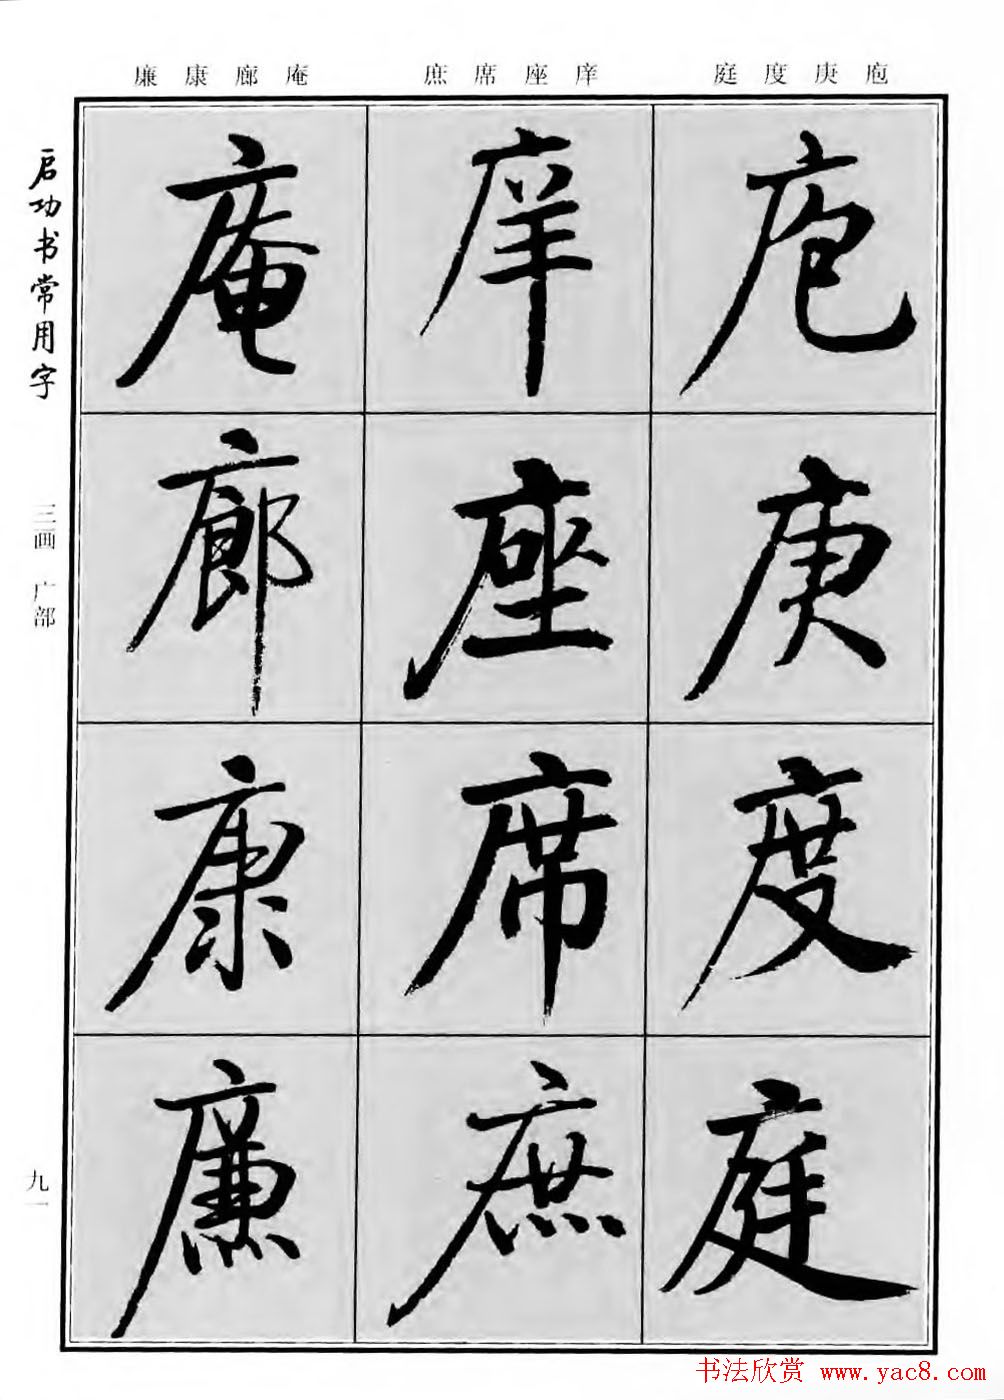 庵 廊 康 廉
庠 座 席 庶
庖 庚 度 庭
启功书常用字
三画 广部
九一
庖
庚
度
庭
庠
座
席
庶
庵
廊
康
廉
书法欣赏 www.yac8.com